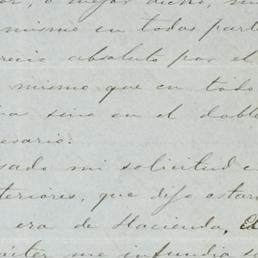 o mejor dicho, mi
mismo en todas part
recio absoluto por el
mismo que en todo
na sino en el dobl
esario.
sado mi solicitud e
teriores, que dijo estar
era de Hacienda,
me infundia